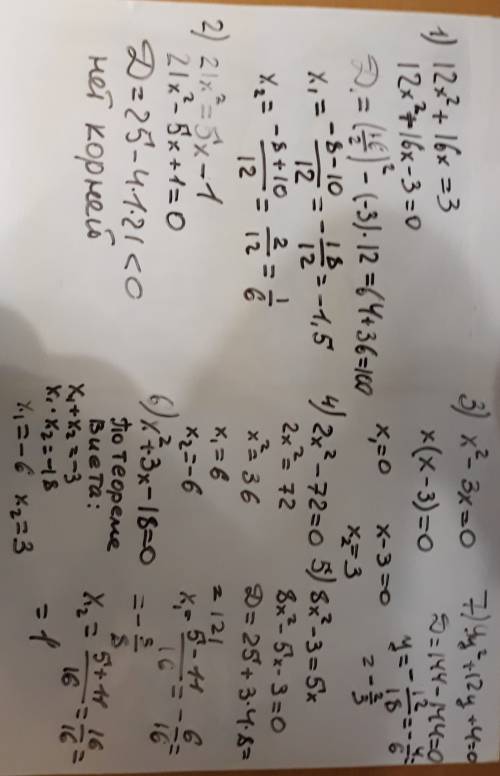 1) 12x² + 16x = 3
12x² + 16x - 3 = 0
D₁ = (16/2)² - (-3)·12 = 64 + 36 = 100
x₁ = (-8-10)/12 = -18/12 = -1,5
x₂ = (-8+10)/12 = 2/12 = 1/6
2) 21x² = 5x - 1
21x² - 5x + 1 = 0
D = 25 - 4·1·21 < 0
нет корней
3) x² - 3x = 0
x(x - 3) = 0
x₁ = 0 x - 3 = 0
x₂ = 3
4) 2x² - 72 = 0
2x² = 72
x² = 36
x₁ = 6
x₂ = -6
5) 8x² - 3 = 5x
8x² - 5x - 3 = 0
D = 25 + 3·4·8 =
= 121
x₁ = (5 - 11)/16 = -6/16 =
= -3/8
x₂ = (5 + 11)/16 = 16/16 =
= 1
6) x² + 3x - 18 = 0
по теореме
Виета:
x₁ + x₂ = -3
x₁ · x₂ = -18
x₁ = -6 x₂ = 3
7) 9y² + 12y + 4 = 0
D = 144 - 144 = 0
y = -12/18 = -4/6
= -2/3